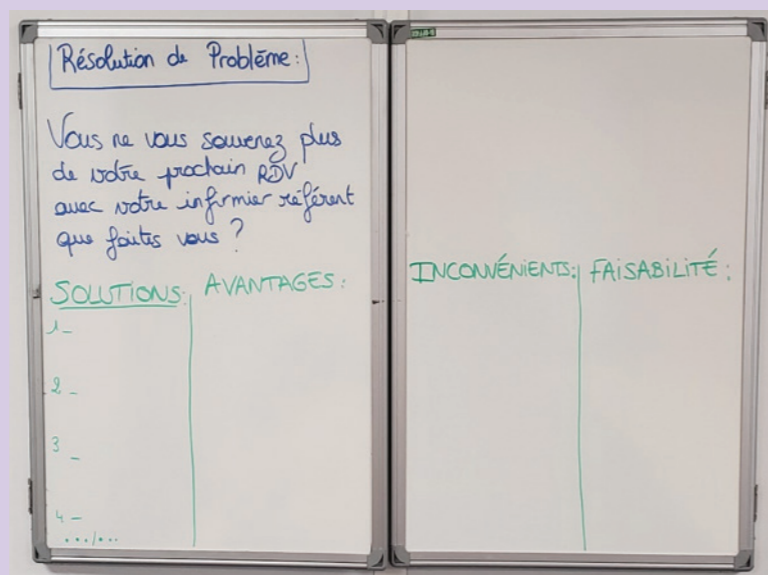 Résolution de Problème:
Vous ne vous souvenez plus
de votre prochain RDV
avec votre infirmier référent
que faites vous ?
SOLUTIONS: AVANTAGES:
1-
2-
3-
4-
.../...
INCONVÉNIENTS: FAISABILITÉ: